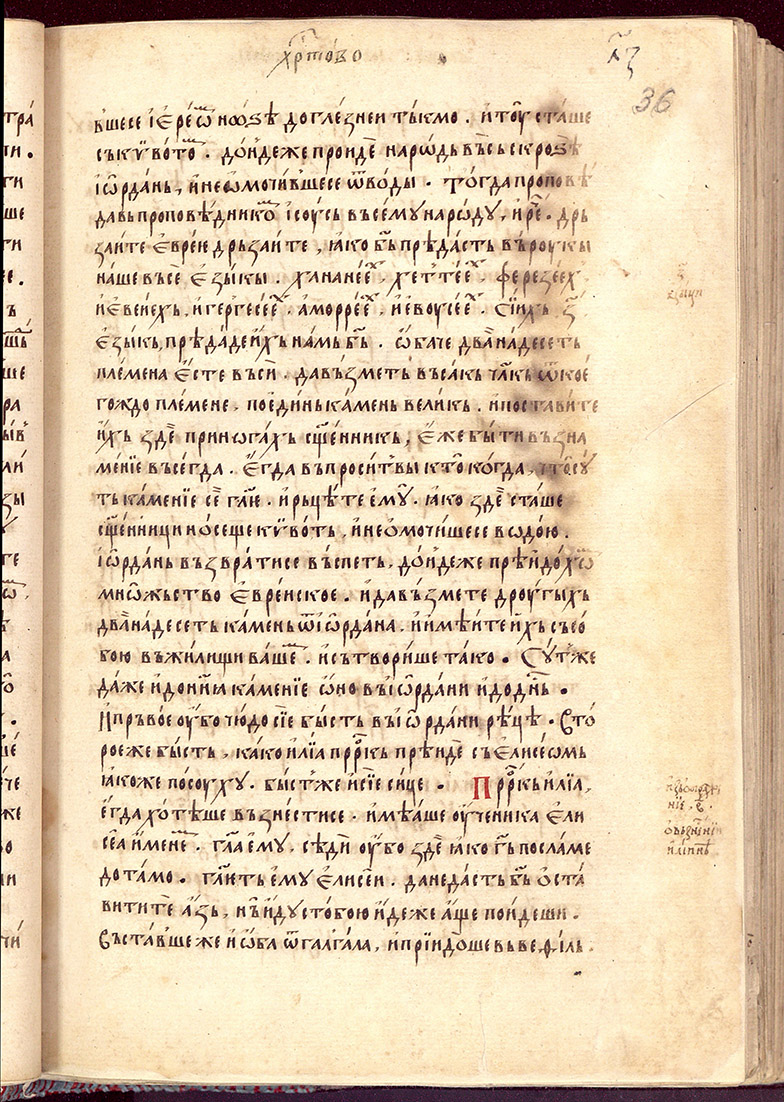 хрⷭ҇тово
л҃з
36
вшесе і҆ере́ѡⷨ но́ѕѣ до глѐзнеи ты́кмо . и҆ тоу̀ ста́ше
съ кӹво́томⷨ . до́идеже проидѐ наро́дь въ́сь скроѕѣ̀
і҆ѡ҆рда́нь, и҆ не ѡ҆мочи́вшесе ѿ во́ды . Тогда пропов̾ѣ
давь проповѣ́дникоⷨ і҆соу́сь въсе́му наро́ду, и҆ рⷱ҇е . дрь
за́ите є҆вре́и дрьза́ите , ꙗ҆ко бь҃ прѣда́сть въ роукы
на́ше въсѐ є҆зы́кы . ханане́еⷯ . хетте́еⷯ . ферезе́ех .
и҆ е҆ве́иехь, и҆ гергесе́еⷯ . а҆морре́еⷯ . и҆ е҆воусе́еⷯ . сїихь з҃
є҆зы́кь, прѣ́даде и҆́хь на́мь бь҃ . ѻ҆́баче два̀надесеть
пле́мена є҆́сте въсѝ . да възметь въса́кь чл҃кь ѿ кое́
гождо пле́мене . по є҆ди́нь ка́мень вели́кь . и҆ поста́вите
и҆́хь здѐ при но́гахь сщ҃е́нникь, є҆́же бы́ти въ зна
ме́нїе въсегда . Е҆гда въпроси́т вы кто̀ когда , что̀ су́
ть ка́менїе сѐ гл҃ю . и҆ рьцѣ́те є҆му̀ . ꙗ҆ко здѐ ста́ше
сщ҃е́нници но́сеще кӹво́ть, и҆ не ѡ҆мочи́шесе водо́ю .
і҆ѡ҆рда́нь възврати́се въспеть, до́идеже прѣи́доⷯѡ
мно́жьство є҆вре́иское . и҆ да възмете дроугы́хь
два̀надесеть ка́мень ѿ і҆ѡ҆рда́на . и҆ и҆мѣ́ите и҆́хь съ со
бою въ жили́щи ва́шеⷨ . и҆ сътвори́ше та́ко . Сут̾же
да́же и҆ до нн҃ꙗ ка́менїе ѡ҆́но въ і҆ѡ҆рда́ни и҆ до дн҃ь .
И҆ пръ́вое оу҆́бо чю́до сїѐ бы́сть въ і҆ѡ҆рда́ни рѣ́цѣ . Вто́
рое же бы́сть , ка́ко и҆лїа̀ прⷪ҇ркь прѣидѐ съ є҆лисе́ѡмь
ꙗ҆коже по соу́ху . бы́сть же и҆ сїѐ си́це . Прⷪ҇ркь и҆лїа̀ ,
є҆гда хо́тѣше възне́стисе . и҆мѣ́аше оу҆ченика є҆ли
се́а и҆́менеⷨ . гл҃а є҆му́ . сѣдѝ оу҆́бо здѐ ꙗ҆ко гь҃ посла ме
до та́мо . гл҃ѥть є҆му̀ є҆лисе́и . да не да́сть бь҃ ѡ҆ста
ви́ти те а҆́зь, нь и҆ду́ с тобо́ю и҆́деже а҆́ще по́идеши .
Въста́вше же и҆ ѡ҆́ба ѿ галга́ла, и҆ прїи́доше вь веѳи́ль .